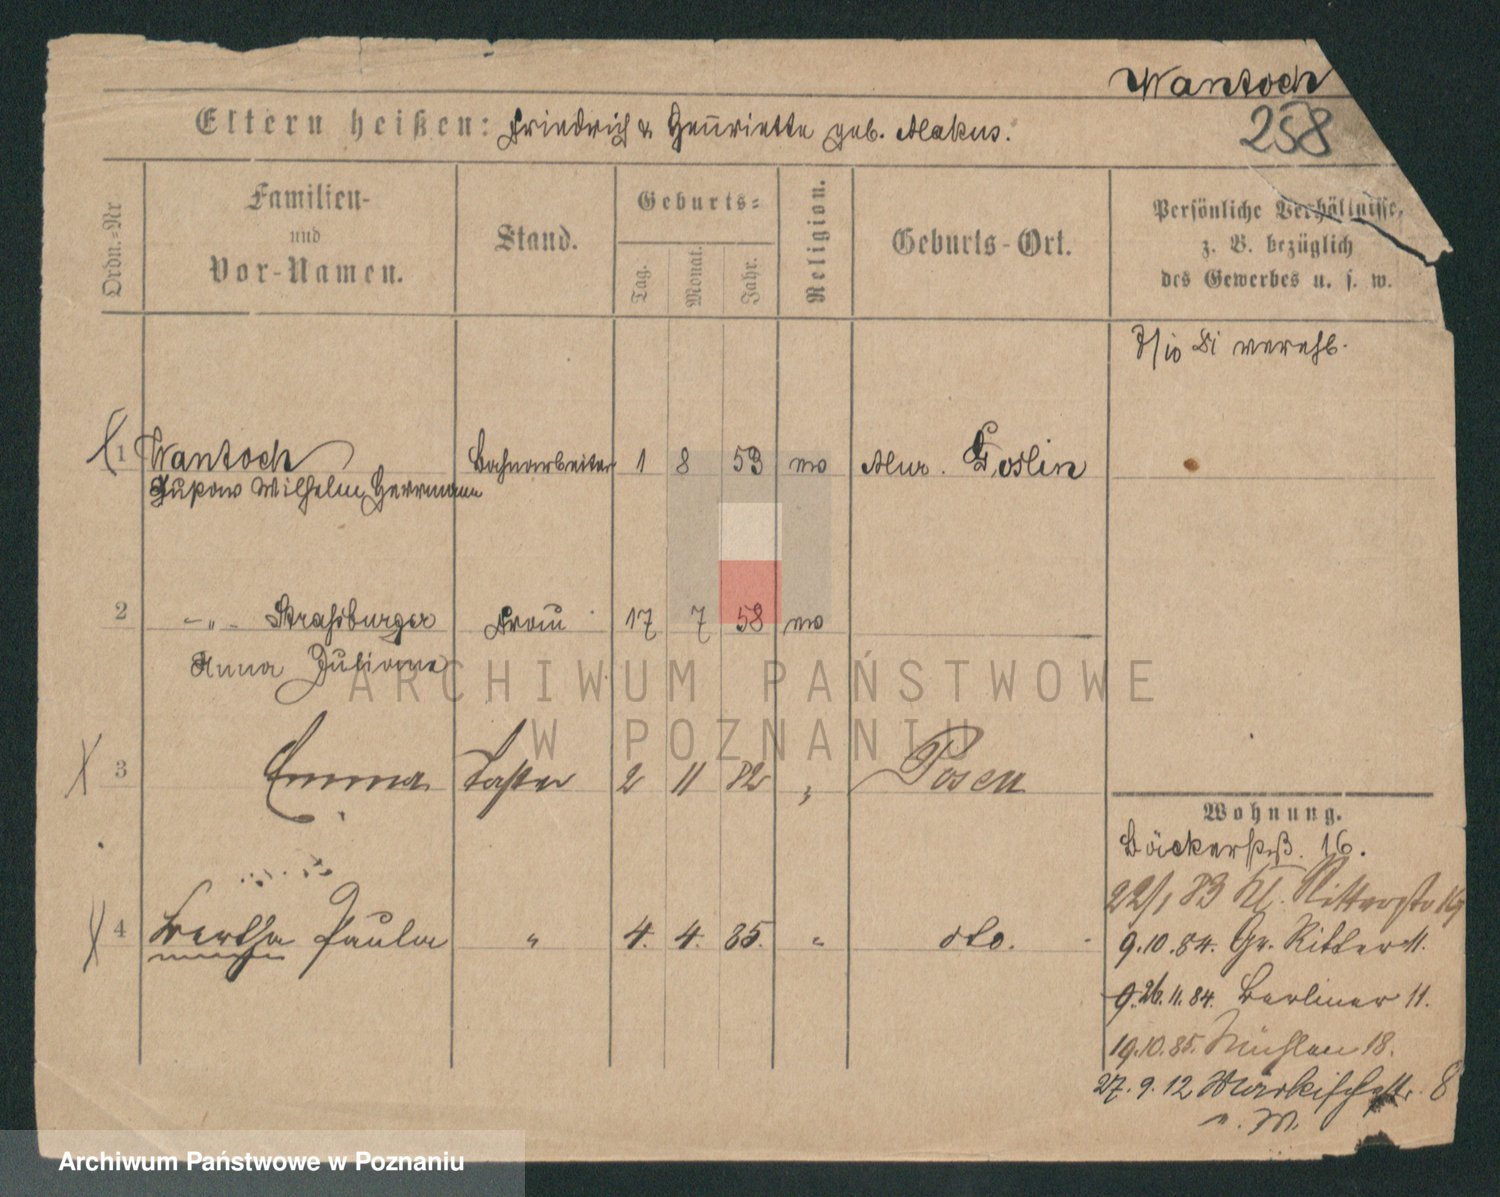 Wantoch
258
Eltern heißen: Friedrich & Henriette geb. Makus.
Ordn.=Nr.
Familien-
und
Vor-Namen.
Stand.
Geburts=
Tag.
Monat.
Jahr.
Religion.
Geburts-Ort.
Persönliche Verhältnisse,
z. B. bezüglich
des Gewerbes u. s. w.
verehl.
1 Wantoch Bahnarbeiter 1 8 53 Mur. Goslin
Wilhelm Herrmann
2 -„- Straßburger Frau 17 7 58
Anna Juliane
3 Emma Tochter 2 11 82 „ Posen
Wohnung.
Bäckerstr. 16.
22/1 83 Kl. Ritterstr
4 Bertha Paula „ 4. 4. 85. „ dto.
9.10.84. Gr. Ritter 11.
26.11.84. Berliner 11.
19.10.85. Mühlen 18.
27.9.12 Märkischestr. 8
ARCHIWUM PAŃSTWOWE
W POZNANIU
Archiwum Państwowe w Poznaniu